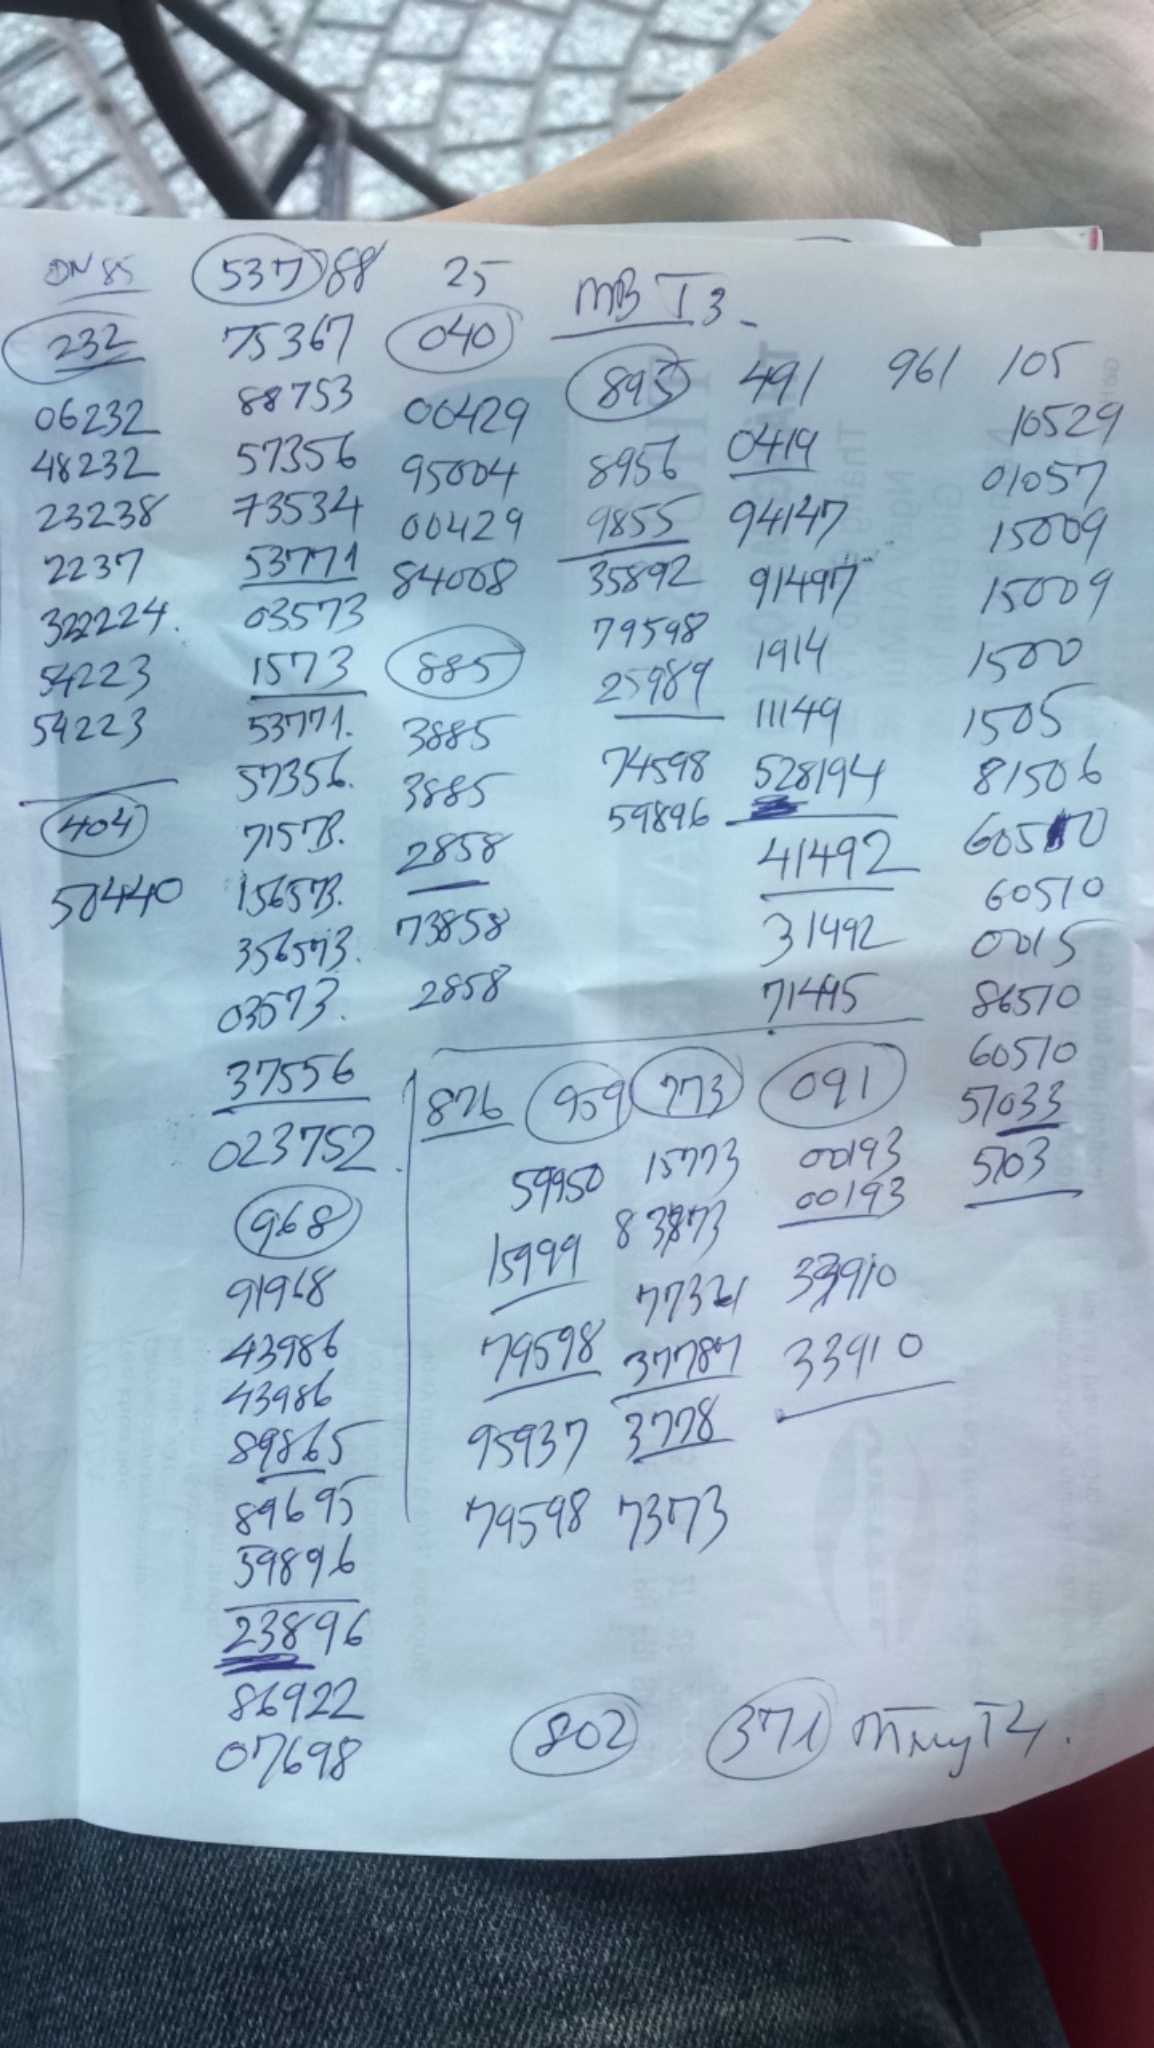 ĐN 85
232
06232
48232
23238
2237
322224.
54223
54223
404
50440
537 88
75367
88753
57356
73534
53771
03573
1573
53771.
57356.
71573.
156573.
356573.
03573.
37556
023752.
968
91968
43986
43986
89865
89695
59896
23896
86922
07698
25
040
00429
95004
00429
84008
885
3885
3885
2858
73858
2858
MB T3
895
8956
9855
35892
79598
25989
74598
59896
491
0419
94147
91497
1914
11149
528194
41492
31492
71495
961
105
10529
01057
15009
15009
1500
1505
81506
60510
60510
0015
86510
60510
51033
5103
876
959
59950
15999
79598
95937
79598
773
15773
83873
77321
37787
3778
7373
091
00193
00193
33910
33910
802
371